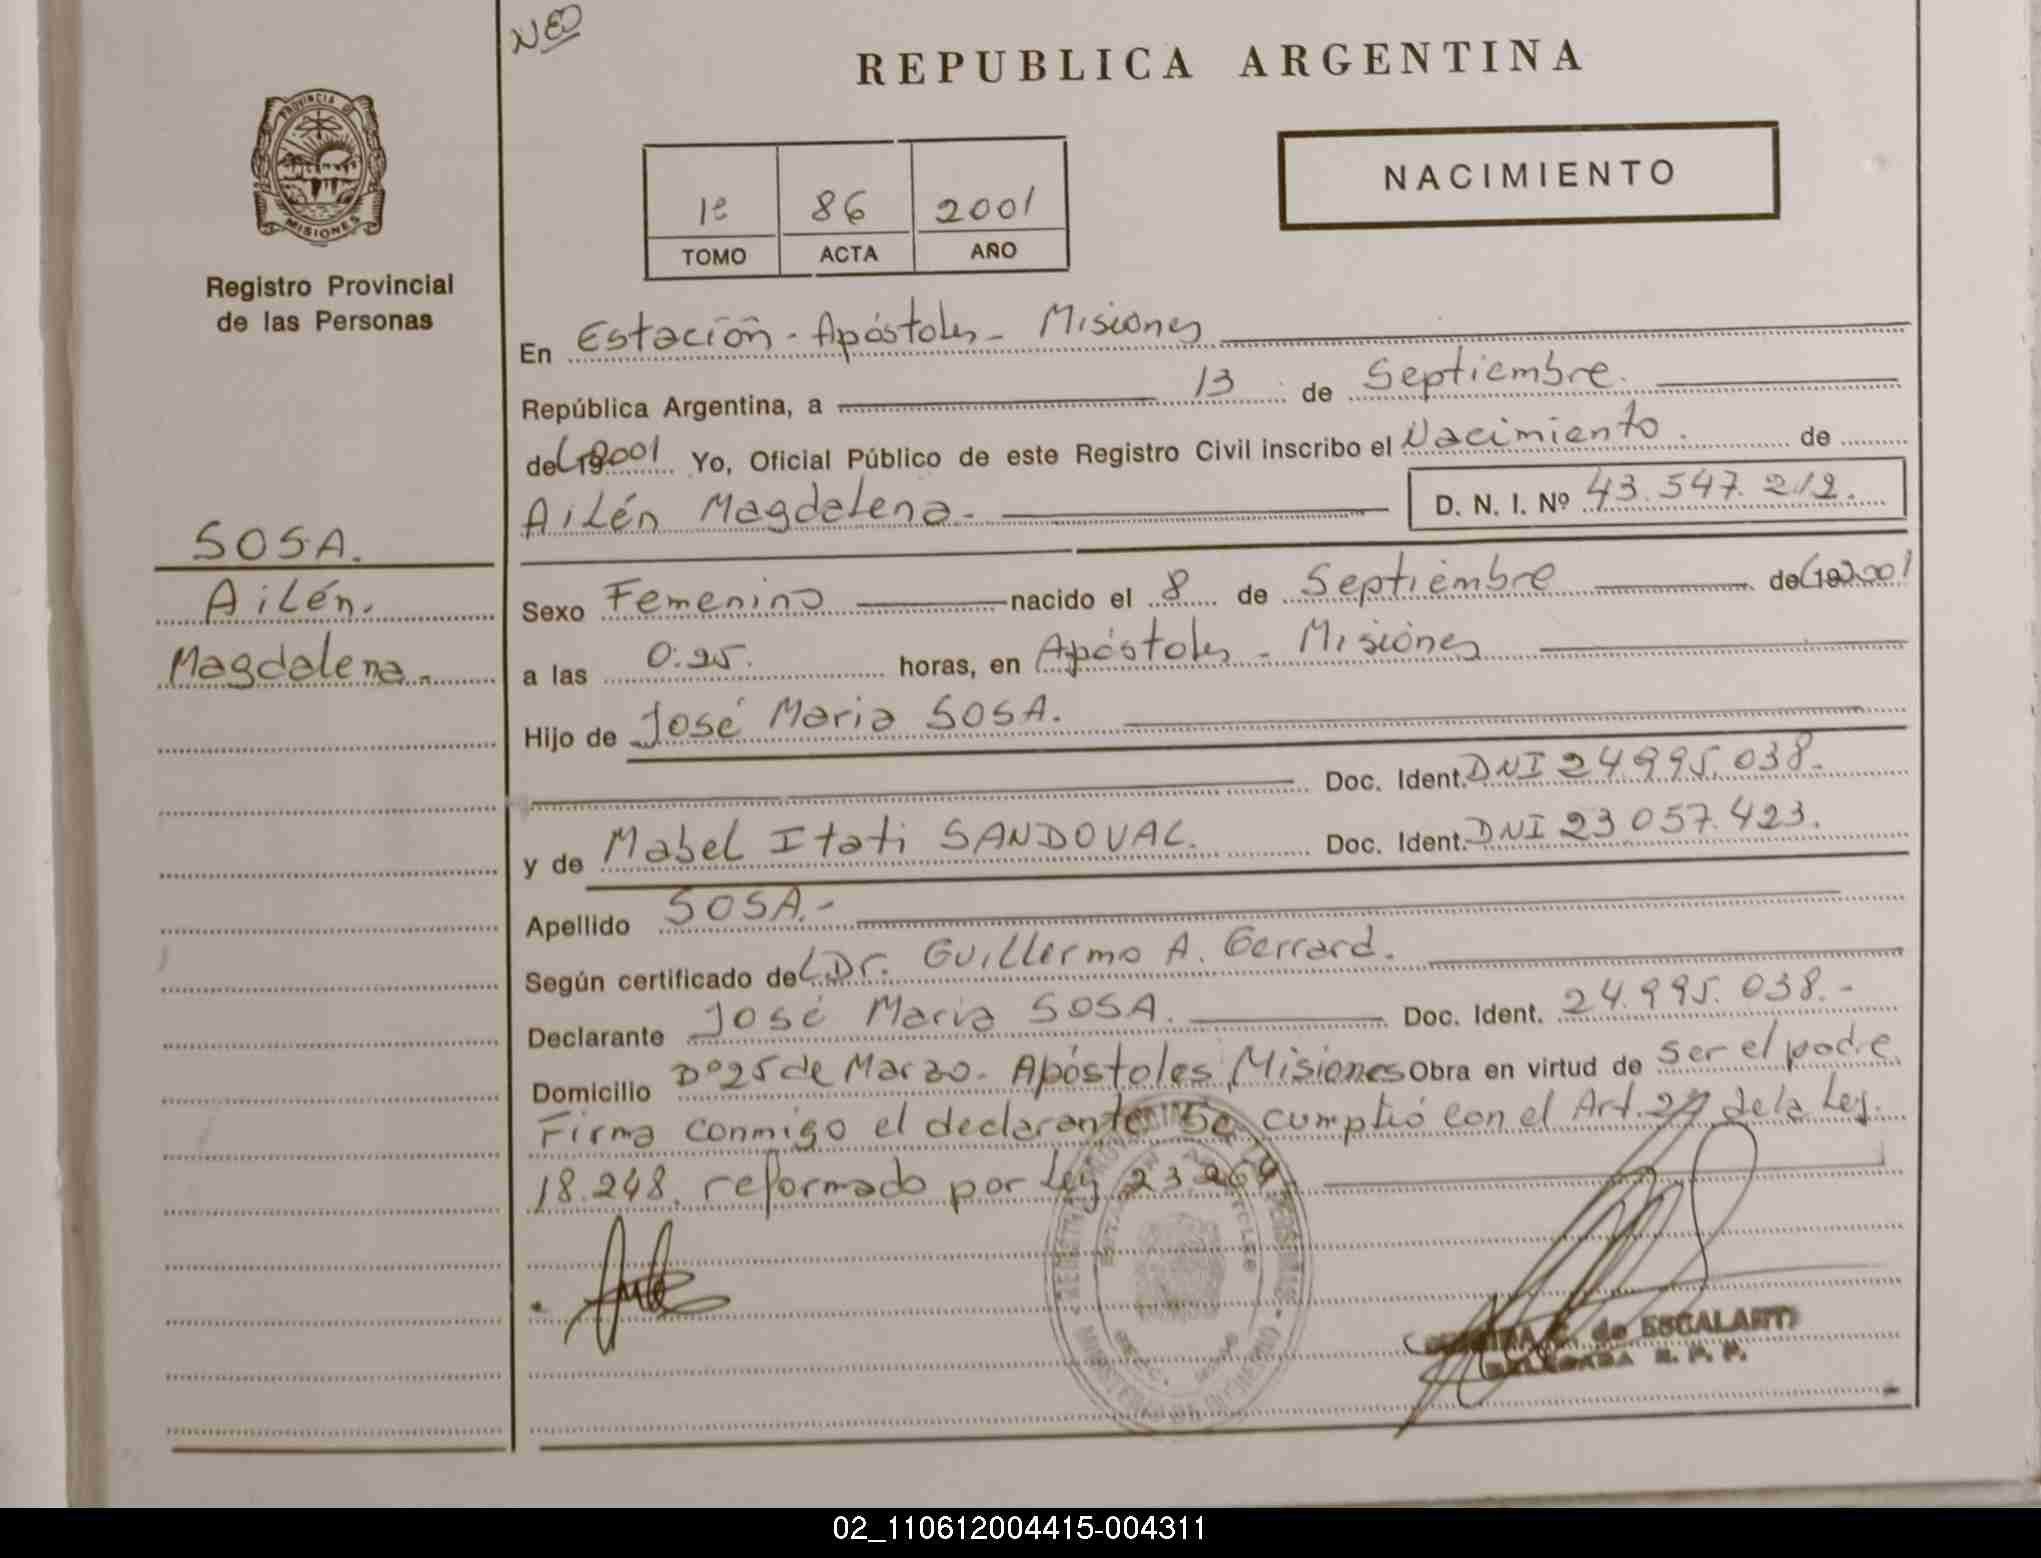 NEO
REPUBLICA ARGENTINA
PROVINCIA DE
MISIONES
Registro Provincial
de las Personas
1º 86 2001
TOMO ACTA AÑO
NACIMIENTO
SOSA.
Ailén.
Magdalena.-
En Estación - Apóstoles - Misiones
República Argentina, a 13 de Septiembre.
del 19 2001 Yo, Oficial Público de este Registro Civil inscribo el Nacimiento. de
Ailén Magdalena.- D. N. I. Nº 43.547.212.
Sexo Femenino nacido el 8 de Septiembre de (19) 2001
a las 0:25. horas, en Apóstoles - Misiones
Hijo de José Maria SOSA.
Doc. Ident. DNI 24.995.038.-
y de Mabel Itati SANDOVAL. Doc. Ident. DNI 23 057.423.
Apellido SOSA.-
Según certificado del Dr. Guillermo A. Gerrard.
Declarante José Maria SOSA. Doc. Ident. 24.995.038.-
Domicilio Bº 25 de Marzo. Apóstoles, Misiones Obra en virtud de ser el padre
Firma conmigo el declarante Se cumplió con el Art. 27 de la Ley.
18.248. reformado por Ley 23 264.
de ESCALANTE
DELEGADA R. P. P.
02_110612004415-004311